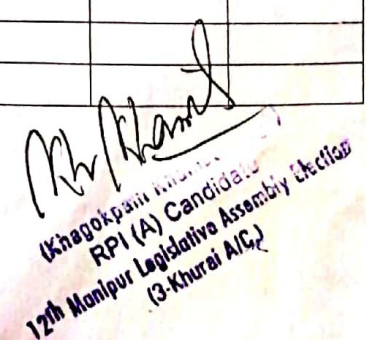 (Khagokpam
RPI (A) Candidate
12th Manipur Legislative Assembly Election
(3-Khurai A/C,)